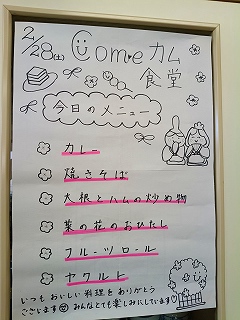 2/28(土) Come カム
食堂
今日のメニュー
カレー
焼きそば
大根とハムの炒め物
菜の花のおひたし
フルーツロール
ヤクルト
いつもおいしい料理をありがとう
ございます みんなとても楽しみにしています